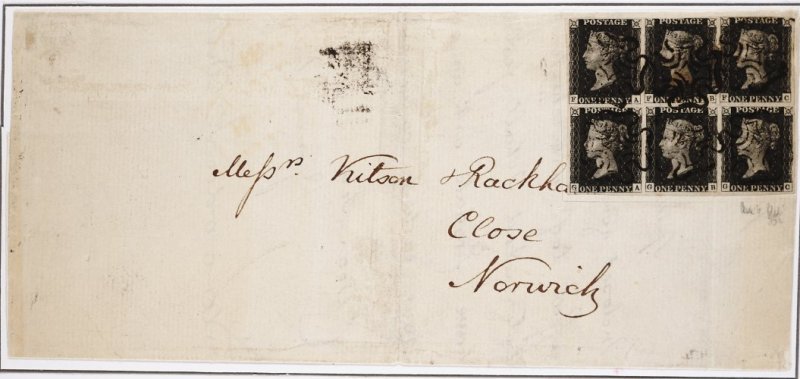 POSTAGE POSTAGE POSTAGE
F ONE PENNY A F ONE PENNY B F ONE PENNY C
POSTAGE POSTAGE POSTAGE
G ONE PENNY A G ONE PENNY B G ONE PENNY C
Messrs. Kitson & Rackha
Close
Norwich